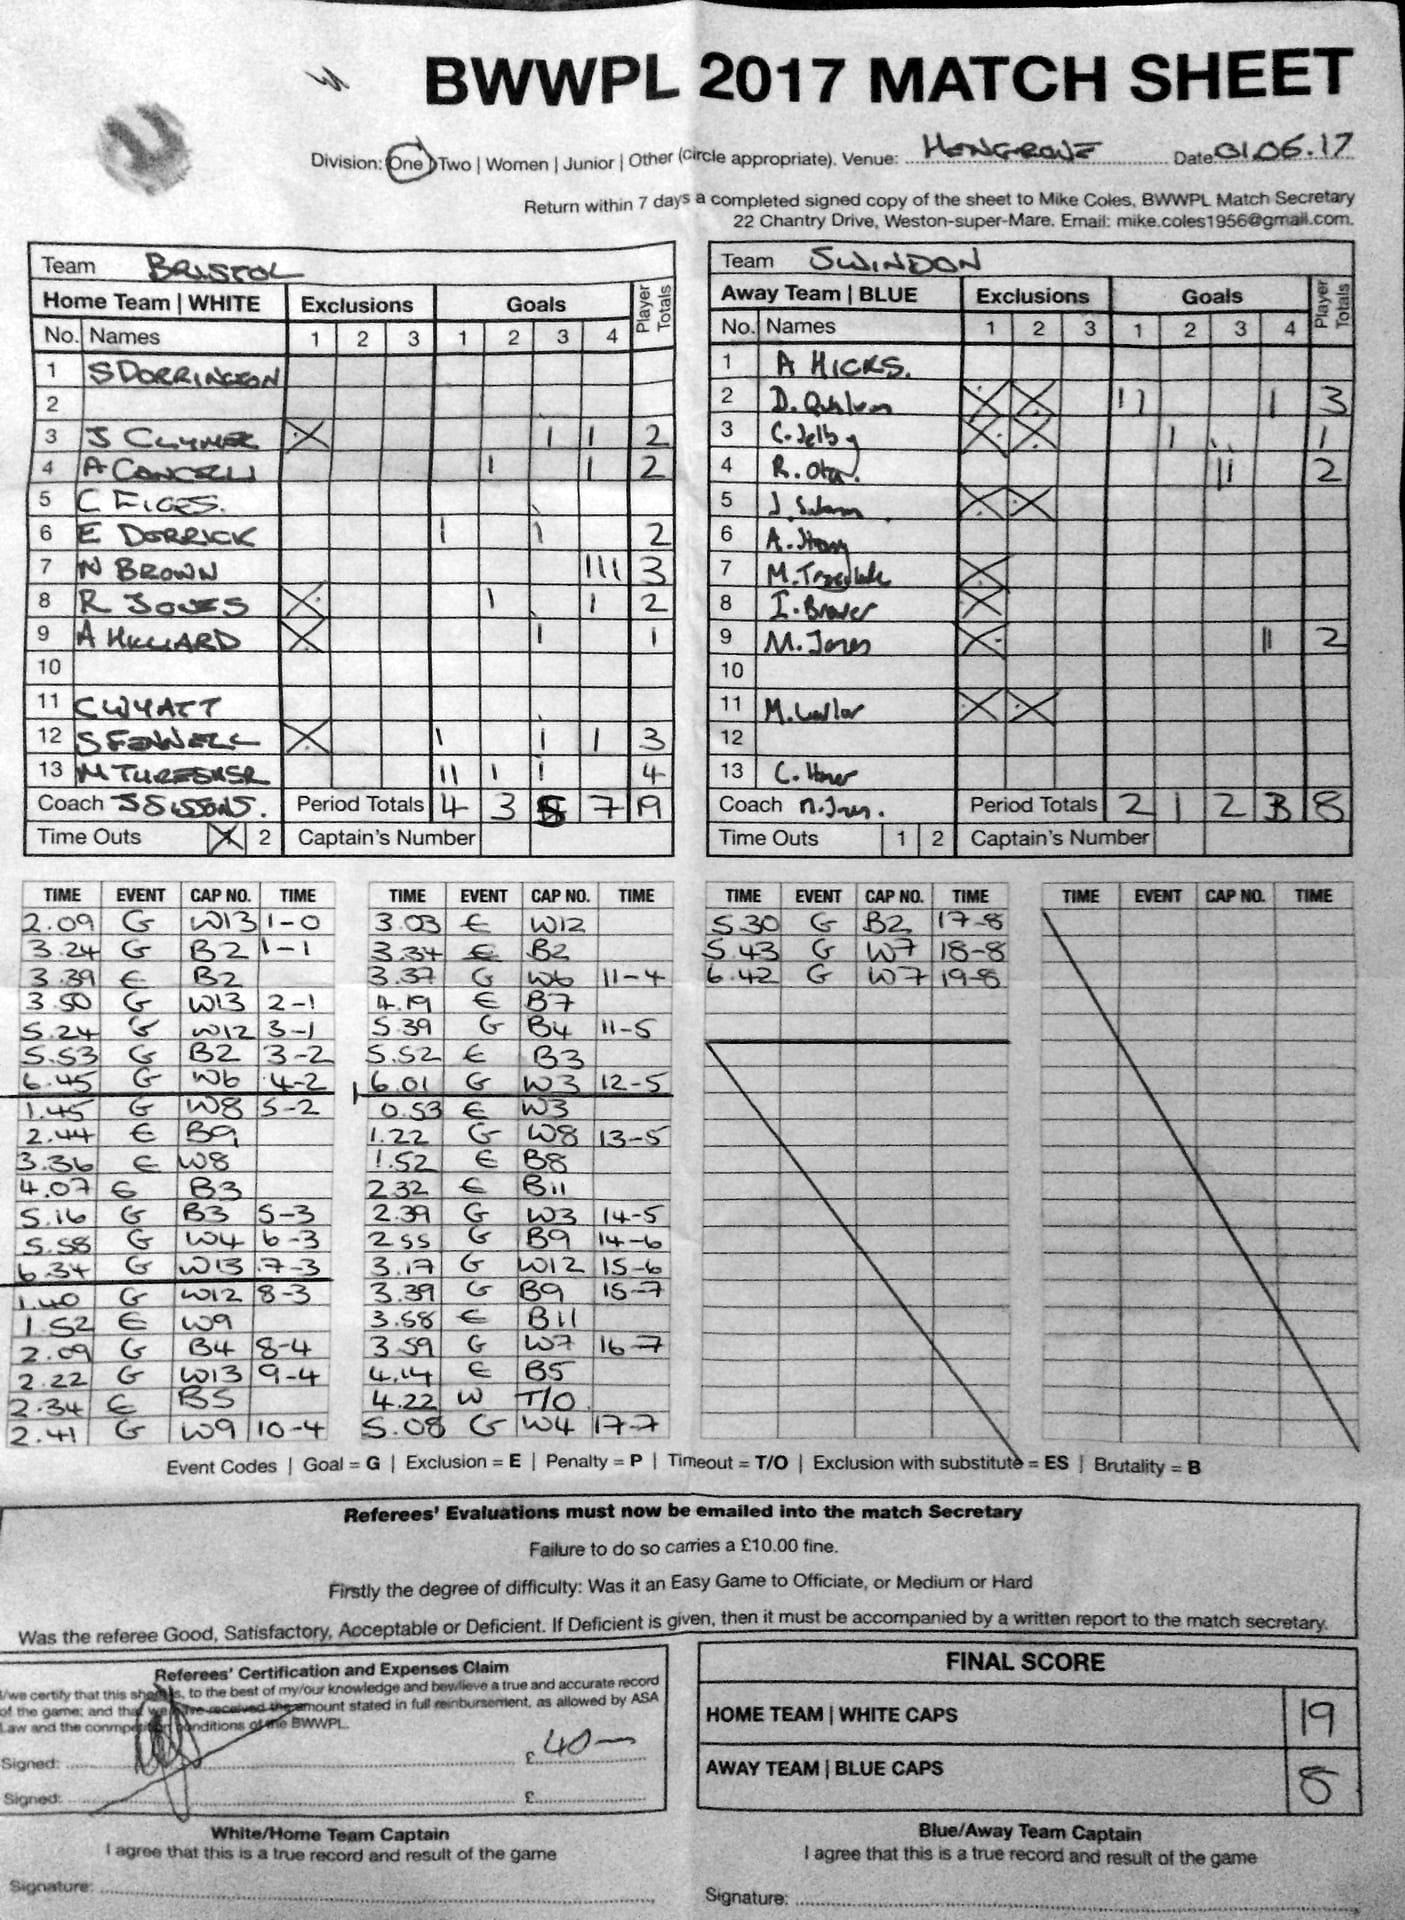 BWWPL 2017 MATCH SHEET
Division: One | Two | Women | Junior | Other (circle appropriate). Venue: HENGROVE Date 01.06.17
Return within 7 days a completed signed copy of the sheet to Mike Coles, BWWPL Match Secretary
22 Chantry Drive, Weston-super-Mare. Email: mike.coles1956@gmail.com.
Team BRISTOL
Home Team | WHITE Exclusions Goals Player Totals
No. Names 1 2 3 1 2 3 4
1 S DORRINGTON
2
3 J CLYMER X | | 2
4 A CANCELLI | | 2
5 C FICES.
6 E DERRICK | | 2
7 N BROWN ||| 3
8 R JONES X | | 2
9 A HILLIARD X | 1
10
11 C WYATT
12 S FENNELL X | | | 3
13 M THRESHER || | | 4
Coach J SISSONS. Period Totals 4 3 5 7 19
Time Outs 1 2 Captain's Number
Team SWINDON
Away Team | BLUE Exclusions Goals Player Totals
No. Names 1 2 3 1 2 3 4
1 A HICKS.
2 D. X X || | 3
3 C. Selby X X | 1
4 R. || 2
5 J. X X
6 A.
7 M. X
8 I. X
9 M. Jones X || 2
10
11 M. X X
12
13 C.
Coach Period Totals 2 1 2 3 8
Time Outs 1 2 Captain's Number
TIME EVENT CAP NO. TIME
2.09 G W13 1-0
3.24 G B2 1-1
3.39 E B2
3.50 G W13 2-1
5.24 G W12 3-1
5.53 G B2 3-2
6.45 G W6 4-2
1.45 G W8 5-2
2.44 E B9
3.36 E W8
4.07 E B3
5.16 G B3 5-3
5.58 G W4 6-3
6.34 G W13 7-3
1.40 G W12 8-3
1.52 E W9
2.09 G B4 8-4
2.22 G W13 9-4
2.34 E B5
2.41 G W9 10-4
TIME EVENT CAP NO. TIME
3.03 E W12
3.34 E B2
3.37 G W6 11-4
4.19 E B7
5.39 G B4 11-5
5.52 E B3
6.01 G W3 12-5
0.53 E W3
1.22 G W8 13-5
1.52 E B8
2.32 E B11
2.39 G W3 14-5
2.55 G B9 14-6
3.17 G W12 15-6
3.39 G B9 15-7
3.58 E B11
3.59 G W7 16-7
4.14 E B5
4.22 W T/O
5.08 G W4 17-7
TIME EVENT CAP NO. TIME
5.30 G B2 17-8
5.43 G W7 18-8
6.42 G W7 19-8
TIME EVENT CAP NO. TIME
Event Codes | Goal = G | Exclusion = E | Penalty = P | Timeout = T/O | Exclusion with substitute = ES | Brutality = B
Referees' Evaluations must now be emailed into the match Secretary
Failure to do so carries a £10.00 fine.
Firstly the degree of difficulty: Was it an Easy Game to Officiate, or Medium or Hard
Was the referee Good, Satisfactory, Acceptable or Deficient. If Deficient is given, then it must be accompanied by a written report to the match secretary.
Referees' Certification and Expenses Claim
I/we certify that this sheet is, to the best of my/our knowledge and bewlieve a true and accurate record
of the game; and that we have received the amount stated in full reinbursement, as allowed by ASA
Law and the conmpetition conditions of the BWWPL.
Signed: £ 40
Signed: £
FINAL SCORE
HOME TEAM | WHITE CAPS 19
AWAY TEAM | BLUE CAPS 8
White/Home Team Captain
I agree that this is a true record and result of the game
Signature:
Blue/Away Team Captain
I agree that this is a true record and result of the game
Signature: